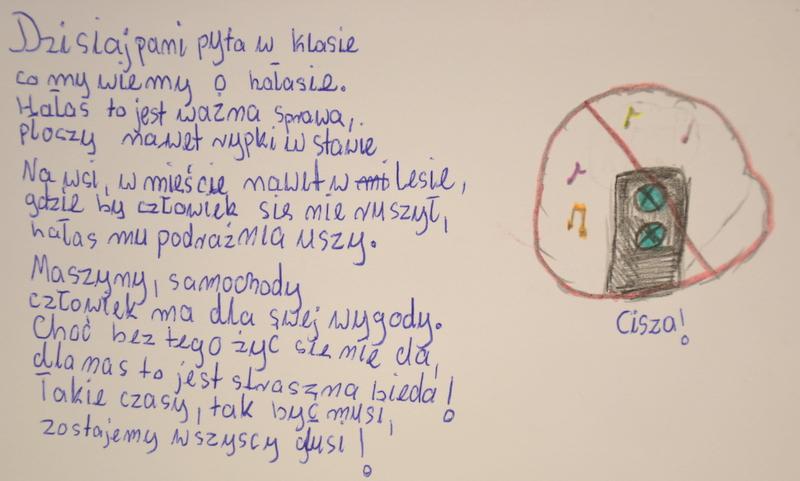 Dzisiaj pani pyta w klasie
co my wiemy o hałasie.
Hałas to jest ważna sprawa,
płoczy nawet rypki w stawie
Na wsi, w mieście nawet w lesie,
gdzie by człowiek się nie ruszył,
hałas mu podrażnia uszy.
Maszyny, samochody
człowiek ma dla swej wygody.
Choć bez tego żyć się nie da,
dla nas to jest straszna bieda!
Takie czasy, tak być musi,
zostajemy wszyscy głusi!
Cisza!